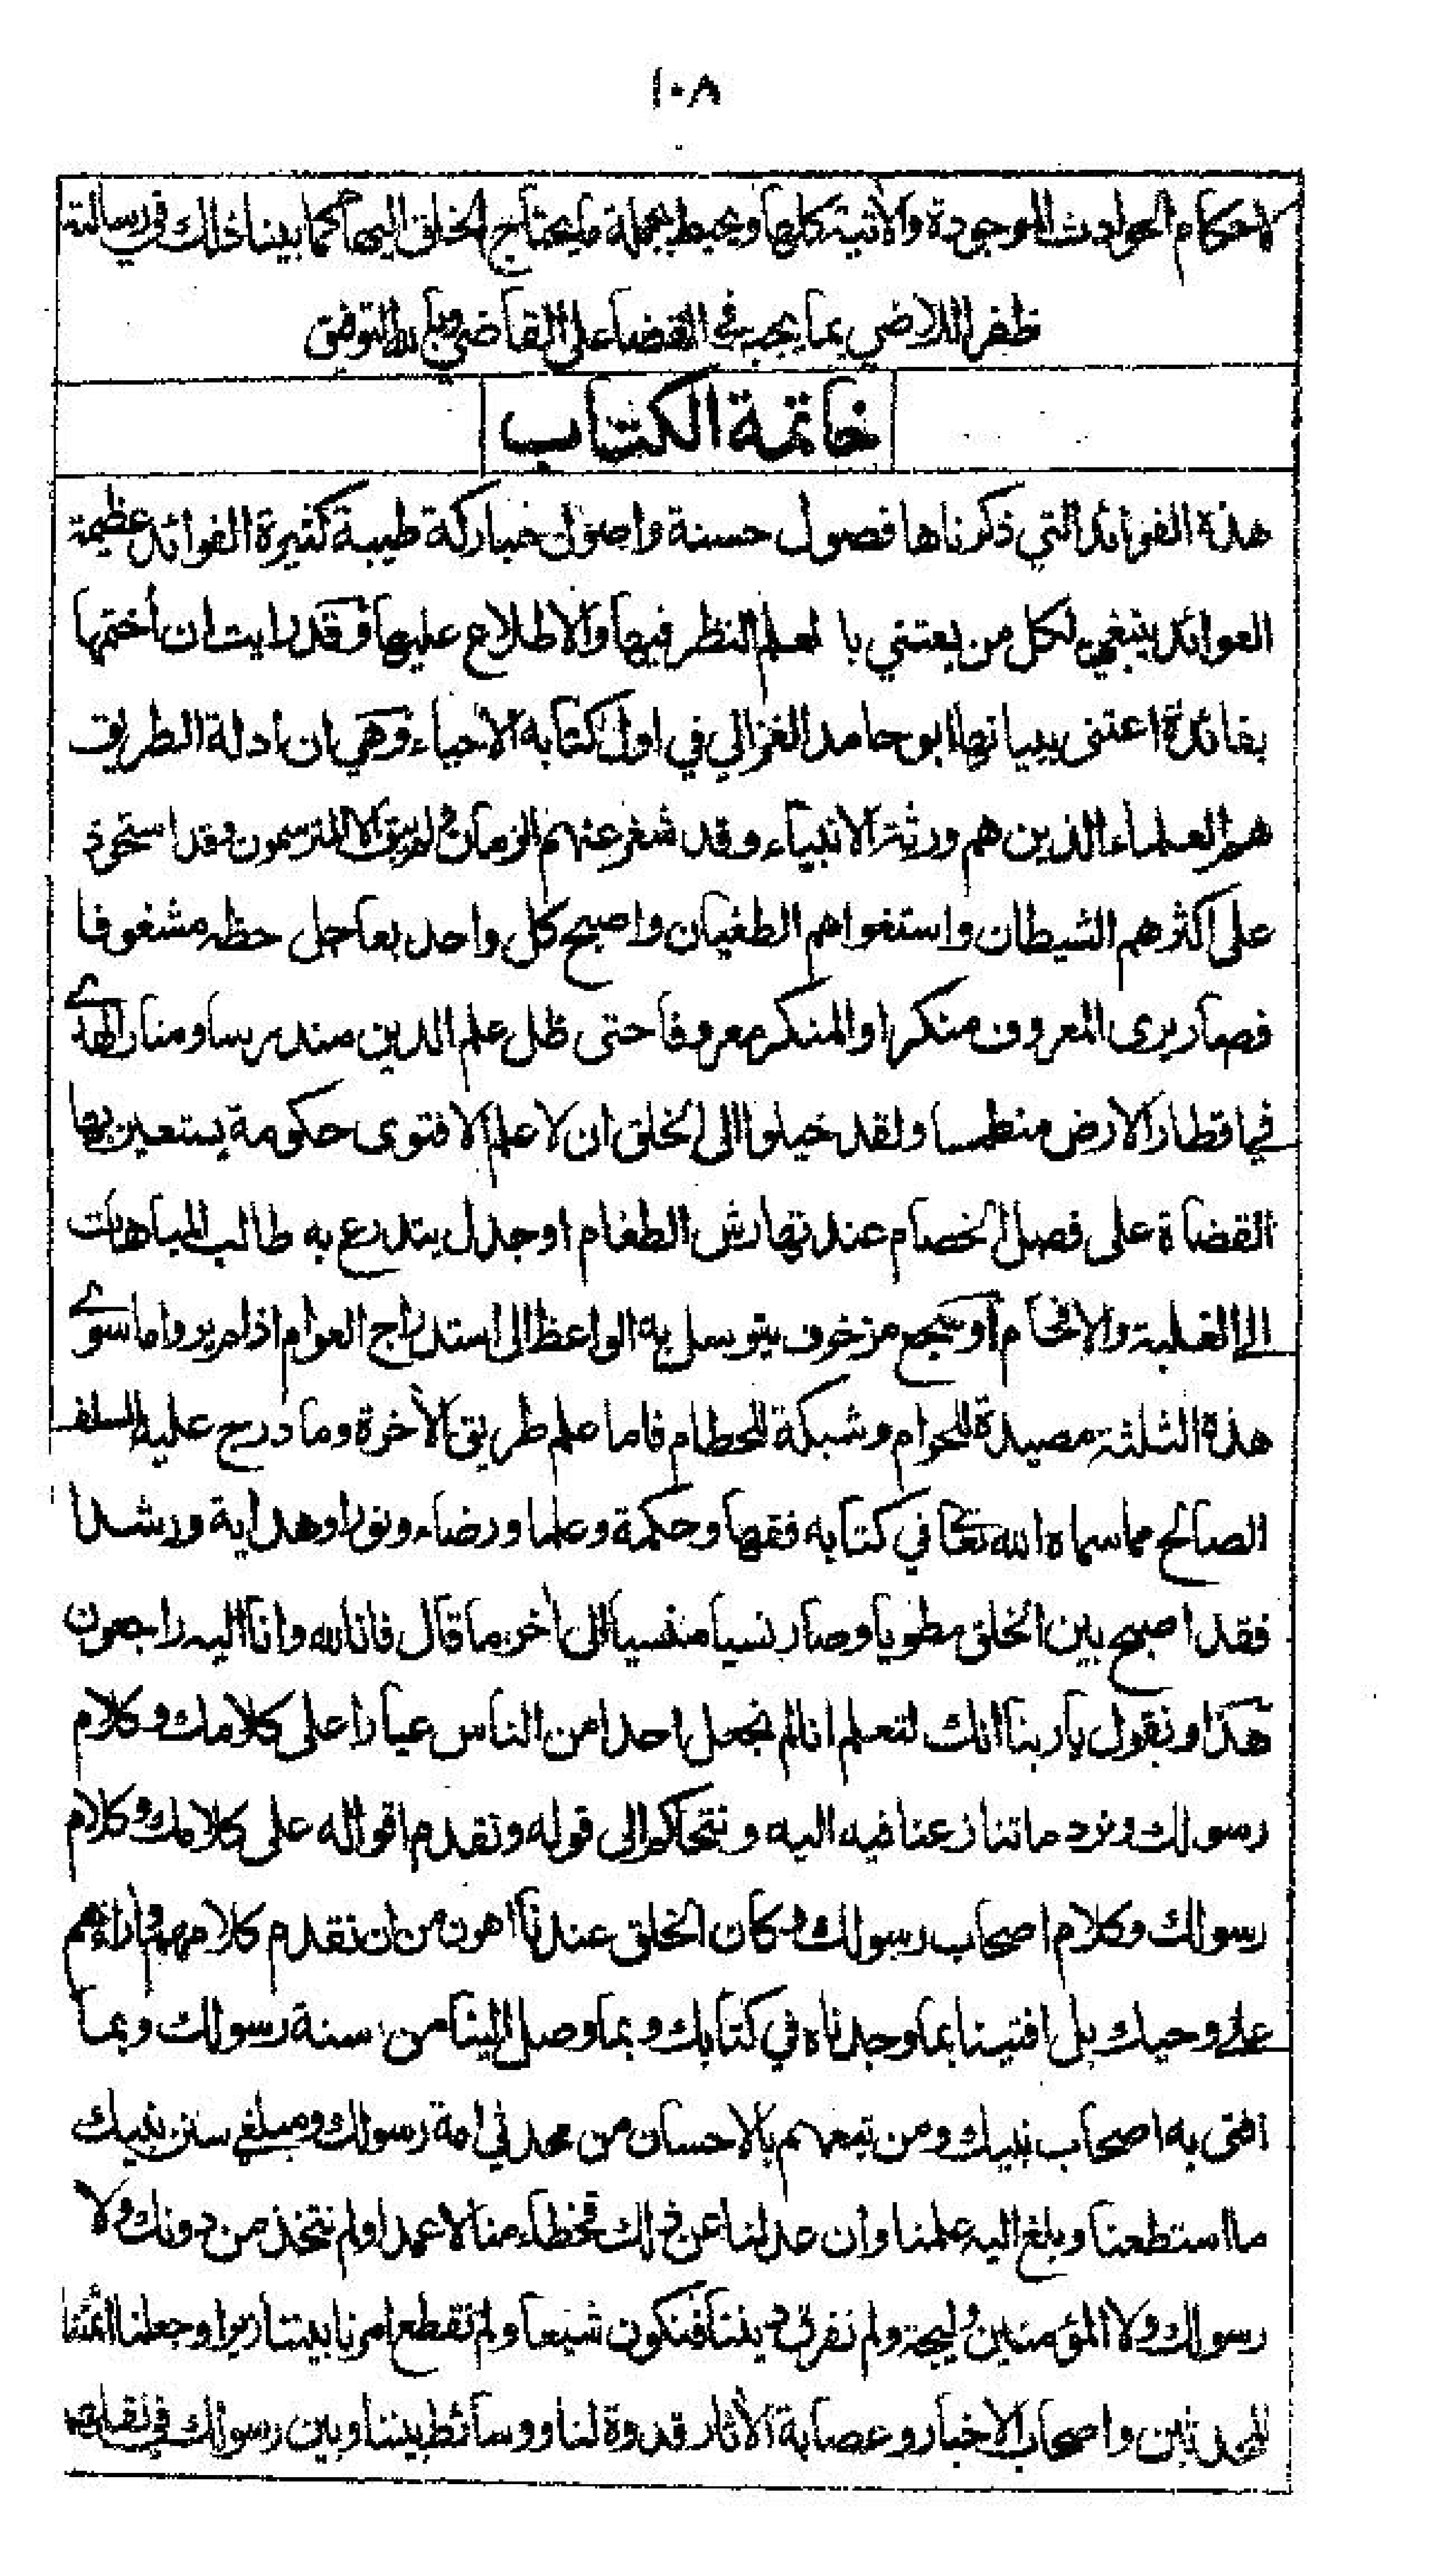 ١٠٨
لاحكام الحوادث الموجودة والآتية كلها ويحيط بجملة ما يحتاج الخلق اليها كما بينا ذلك في رسالة
ظفر اللاضي بما يجب في القضاء على القاضي وبالله التوفيق
خاتمة الكتاب
هذه الفوائد التي ذكرناها فصول حسنة واصول مباركة طيبة كثيرة الفوائد عظيمة
العوائد ينبغي لكل من يعتني بالعلم النظر فيها والاطلاع عليها وقد رايت ان أختمها
بفائدة اعتنى ببيانها ابو حامد الغزالي في اول كتابه الاحياء وهي ان ادلة الطريق
هم العلماء الذين هم ورثة الانبياء وقد شغر عنهم الزمان ولم يبق الا المترسمون وقد استحوذ
على اكثرهم الشيطان واستغواهم الطغيان واصبح كل واحد بعاجل حظه مشغوفا
فصار يرى المعروف منكرا والمنكر معروفا حتى ظل علم الدين مندرسا ومنار الهدى
في اقطار الارض منطمسا ولقد خيلوا الى الخلق ان لا علم الا فتوى حكومة يستعين بها
القضاة على فصل الخصام عند تهارش الطغام او جدل يتدرع به طالب المباهات
الى الغلبة والافحام أو سجع مزخرف يتوسل به الواعظ الى استدراج العوام اذ لم يروا ما سوى
هذه الثلثة مصيدة للحرام وشبكة للحطام فاما علم طريق الآخرة وما درج عليه السلف
الصالح مما سماه الله تعا في كتابه فقها وحكمة وعلما وضياء ونورا وهداية ورشدا
فقد اصبح بين الخلق مطويا وصار نسيا منسيا الى أخر ما قال فانا لله وانا اليه راجعون
هذا ونقول يا ربنا انك لتعلم انا لم نجعل احدا من الناس عيارا على كلامك وكلام
رسولك ونرد ما تنازعنا فيه اليه ونتحاكم الى قوله ونقدم اقواله على كلامك وكلام
رسولك وكلام اصحاب رسولك وكان الخلق عندنا اهون من ان نقدم كلامهم وأراءهم
على وحيك بل افتينا بما وجدناه في كتابك وبما وصل الينا من سنة رسولك وبما
افتى به اصحاب نبيك ومن تبعهم بالاحسان من محدثي امة رسولك ومبلغي سنن نبيك
ما استطعنا وبلغ اليه علمنا وان عدلنا عن ذلك فخطاء منا لا عمدا ولم نتخذ من دونك ولا
رسولك ولا المؤمنين وليجة ولم نفرق ديننا فنكون شيعا ولم نقطع امرنا بيننا زبرا وجعلنا ائمتنا
المحدثين واصحاب الاخبار وعصابة الآثار قدوة لنا ووسائط بيننا وبين رسولك في نقلهم